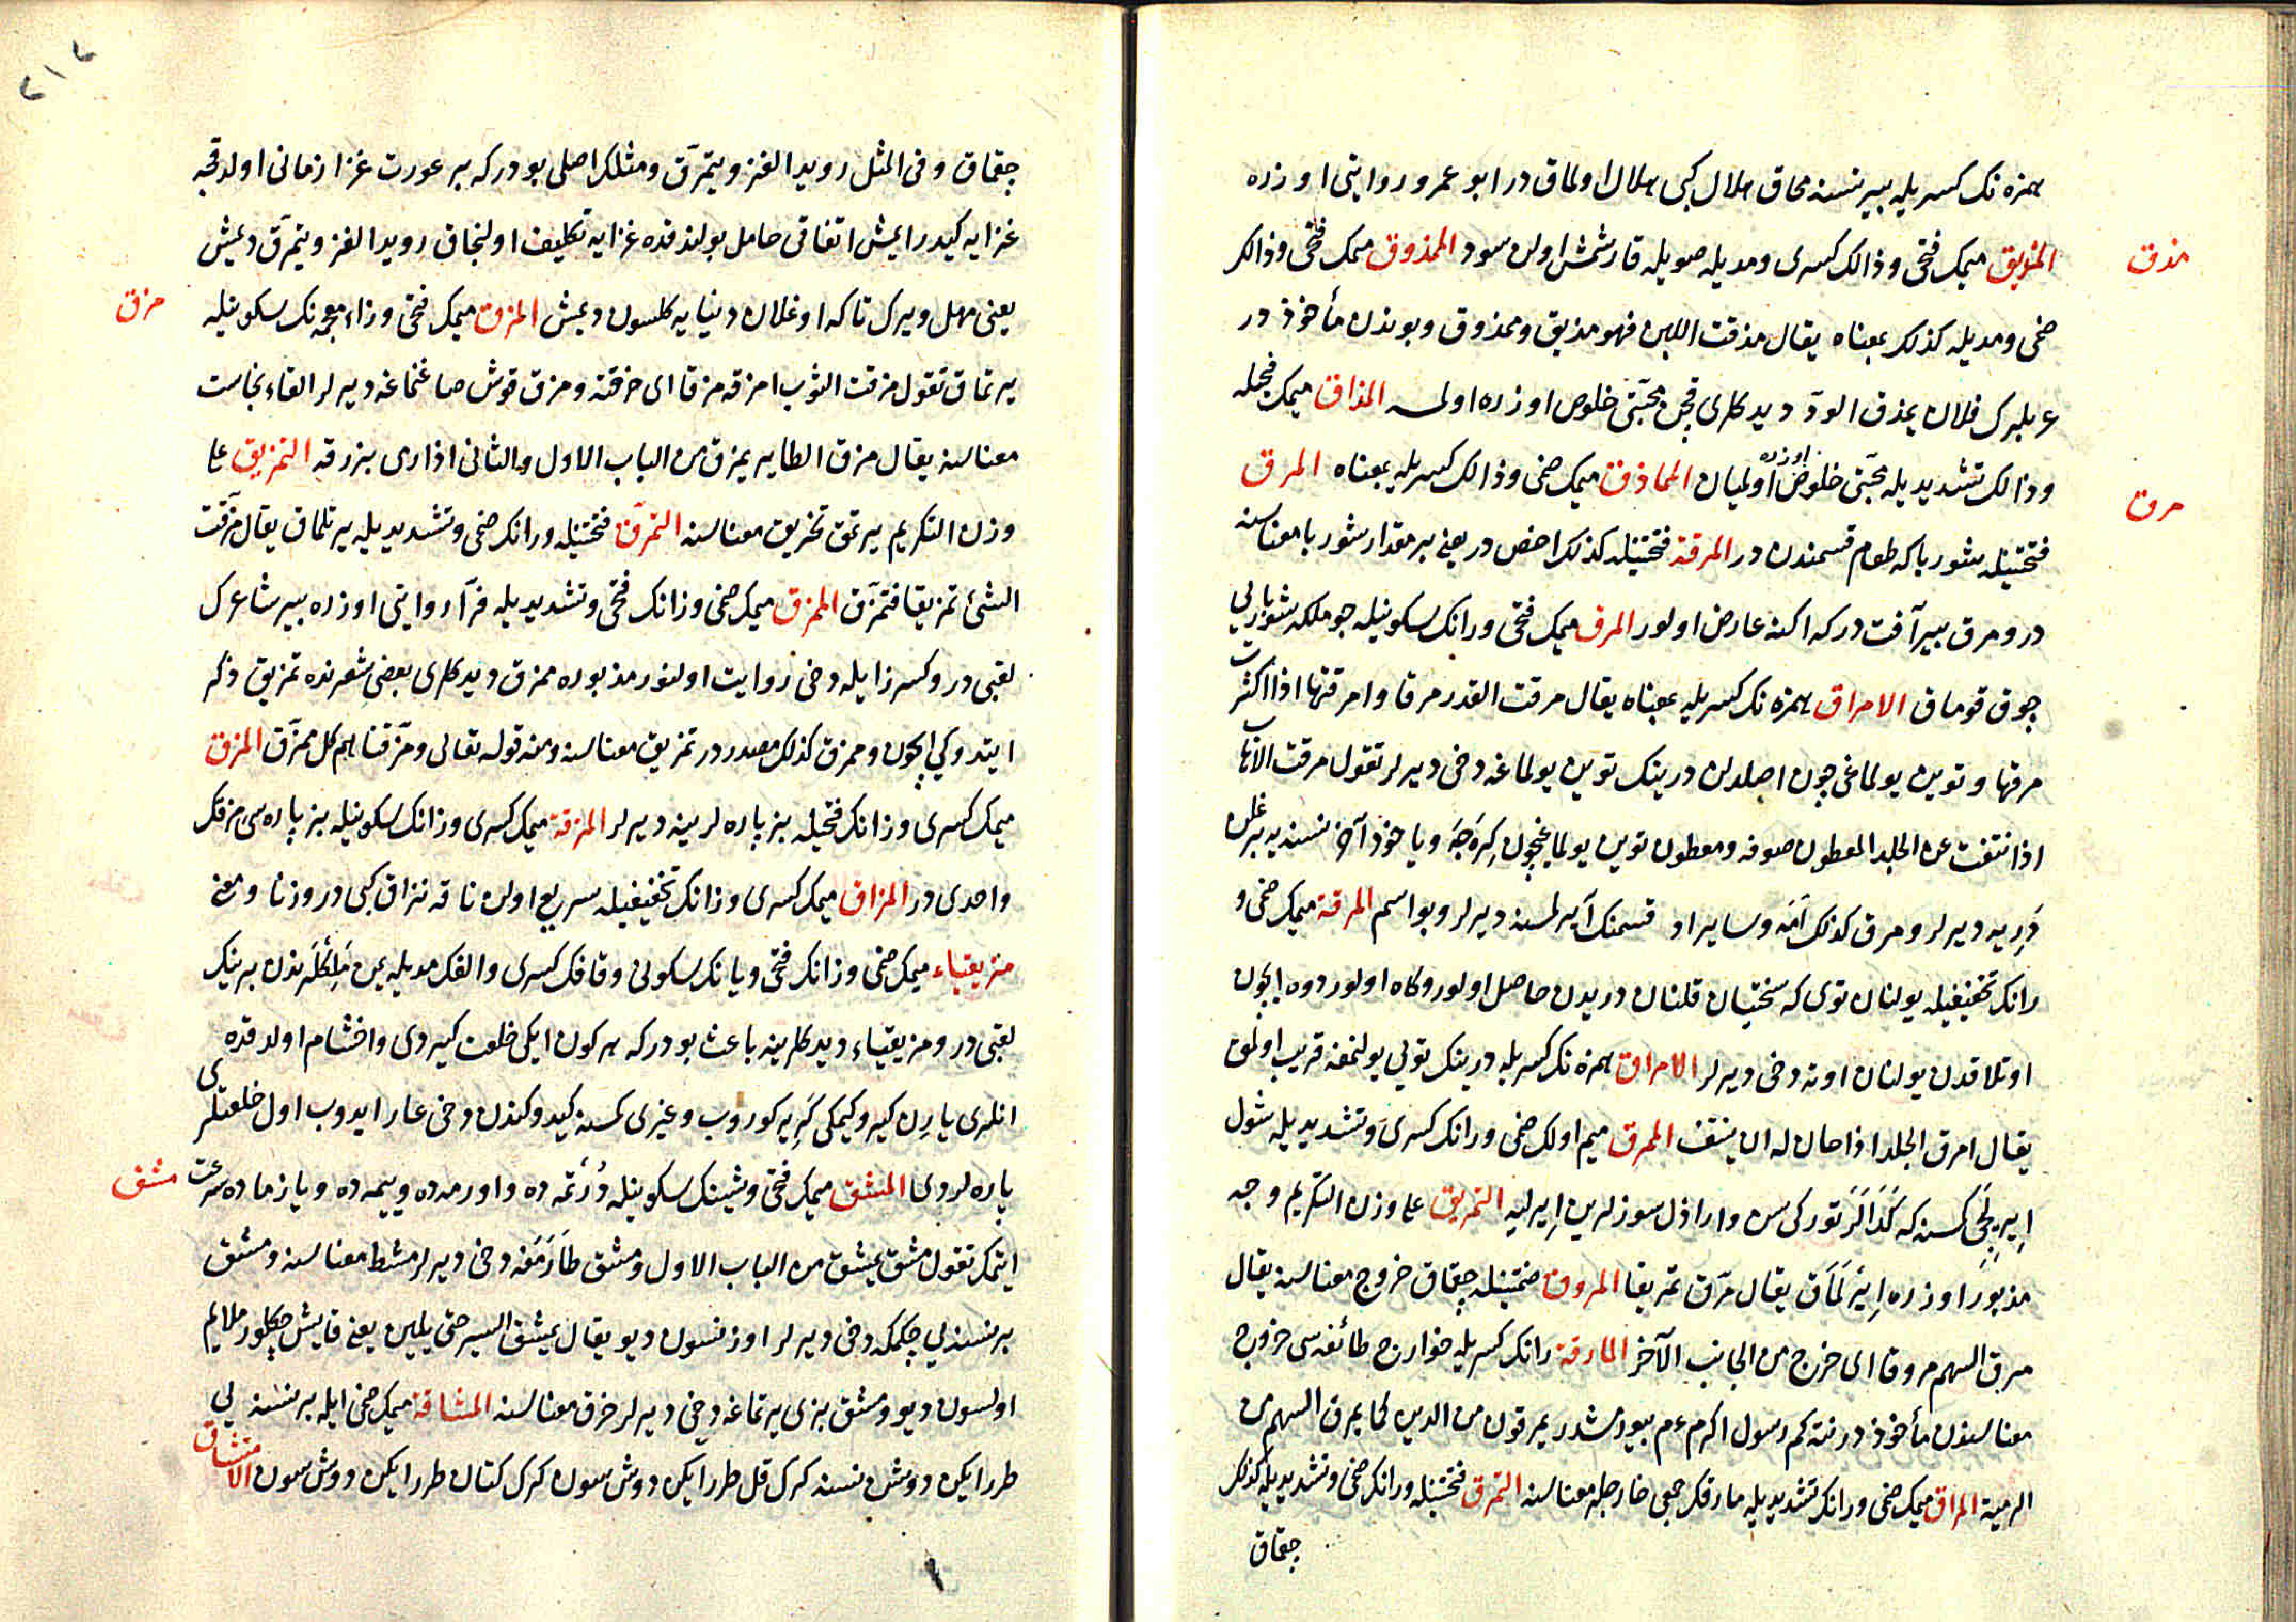 همزه نك كسريله بير نسنه محاق هلال كبى هلاك اولماق در ابو عمرو روايتى اوزره
مذق
المذيق ميمك فتحى وذالك كسرى ومديله صويله قارشمش اولن سود المذوق ميمك فتحى وذالك
ضمى ومديله كذلك بمعناه يقال مذقت اللبن فهو مذيق وممذوق وبوندن مأخوذ در
عربلرك فلان يمذق الودّ ديدكلرى قچن محبّتى خلوص اوزره اولمسه المذاق ميمك فتحيله
وذالك تشديديله محبّتى خلوص اوزره اولميان المماذق ميمك ضمى وذالك كسريله بمعناه المرق
مرق
فتحتينله شوربا كه طعام قسمندن در المرقة فتحتينله كذلك اخص در يعنى بر مقدار شوربا معناسنه
در ومرق بير آفت در كه اكينه عارض اولور المرق ميمك فتحى ورانك سكونيله چوملكه شوربايى
چوق قوماق الامراق همزه نك كسريله بمعناه يقال مرقت القدر مرقا وامرقتها اذا اكثرت
مرقها وتوين يولماغچون اصلدن درينك توين يولماغه دخى ديرلر تقول مرقت الاهاب
اذا نتفت عن الجلد المعطون صوفه ومعطون توين يولماغچون كِرَجَه ويا خود آخر نسنه يه
دَرِيه ديرلر ومرق كذلك اَمَه وساير اد قسمنك آيرلمسنه ديرلر وبو اسم المرقة ميمك ضمى و
رانك تخفيفيله يولنان توى كه سختيان قلنان دريدن حاصل اولور وكاه اولور دوه ايچون
اوتلاقدن يولنان اوته دخى ديرلر الامراق همزه نك كسريله درينك تويى يولنمغه قريب اولمق
يقال امرق الجلد اذا حان له ان ينتف الممرق ميم اولك ضمى ورانك كسرى وتشديديله شول
اِيرلَيِجى كسنه كه توركى سن واراذل سوزلرين اِيرليه التمريق على وزن التكريم وجه
مذبور اوزره اِيرلَمَاق يقال مرّق تمريقا المروق ضمّتينله چقماق خروج معناسنه يقال
مرق السهم مروقا اى خرج من الجانب الآخر المارقة رانك كسريله خوارج طائفه سى خروج
معناسندن مأخوذ در نته كم رسول اكرم عم بيورمشدر يمرقون من الدين كما يمرق السهم من
الرمية المراق ميمك ضمى ورانك تشديديله مارقك جمعى خارجلر معناسنه التمرق فتحتينله ورانك ضمى وتشديديله كذلك
چقماق
چقماق وفى المثل رويدا الغزو يتمرّق ومثلك اصلى بودركه بر عورت غزا زمانى اولدقچه
غزايه كيدر ايمش اتفاقى حامل بولندقده غزايه تكليف اولنجاق رويدا الغزو يتمرّق ديمش
يعنى مهل ويرك تا كه اوغلان دنيايه كلسون ديمش المزق ميمك فتحى وزاء معجمه نك سكونيله
مزق
يرتماق تقول مزقت الثوب امزقه مزقا اى خرقته ومزق قوش صاغنماغه ديرلر القاء نجاست
معناسنه يقال مزق الطاير يمزق من الباب الاول والثانى اذا رمى بذرقه التمزيق على
وزن التكريم يرتمق تخريق معناسنه التمزّق فتحتينله ورانك ضمى وتشديديله يرتلماق يقال مزّقت
الشئ تمزيقا فتمزّق الممزق ميمك ضمى وزانك فتحى وتشديديله فرّاء روايتى اوزره بير شاعرك
لقبى در وكسر زايله دخى روايت اولنور مذبوره ممزق ديدكلرى بعضى شعرنده تمزيق ذكر
ايتدوكى ايچون وممزق كذلك مصدر در تمزيق معناسنه ومنه قوله تعالى ومزّقناهم كل ممزّق المزق
ميمك كسرى وزانك فتحيله بز پاره لرينه ديرلر المزقة ميمك كسرى وزانك سكونيله بز پاره سى مزقك
واحدى در المزاق ميمك كسرى وزانك تخفيفيله سريع اولن ناقه نزاق كبى در وزنا ومعنى
مزيقياء ميمك ضمى وزانك فتحى ويانك سكونى وقافك كسرى والفك مديله يمن مَلِكْلَرندن برينك
لقبى در ومزيقياء ديدكلرينه باعث بودركه هر كون ايكى خلعت كيردى واخشام اولدقده
انلرى يارن كيرو كيمكى كريه كوروب وغيرى كمسنه كيدوكندن دخى عار ايدوب اول خلعتلرى
پاره لردى المشق ميمك فتحى وشينك سكونيله دُرْتمه ده واورمه ده وييمه ده ويازماده سرعت
مشق
ايتمك تقول مشق يمشق من الباب الاول ومشق طارَمَغه دخى ديرلر مشط معناسنه ومشق
بر نسنه يى چكمكه دخى ديرلر اوزنسون ديو يقال يمشق السير حتى يلين يعنى قايش چكلور ملايم
اولسون ديو ومشق بزى يرتماغه دخى ديرلر خرق معناسنه المشاقة ميمك ضمى ايله بر نسنه يى
طرر ايكن دوشن نسنه كرك قل طرر ايكن دوشسون كرك كتان طرر ايكن دوشسون الامتشاق